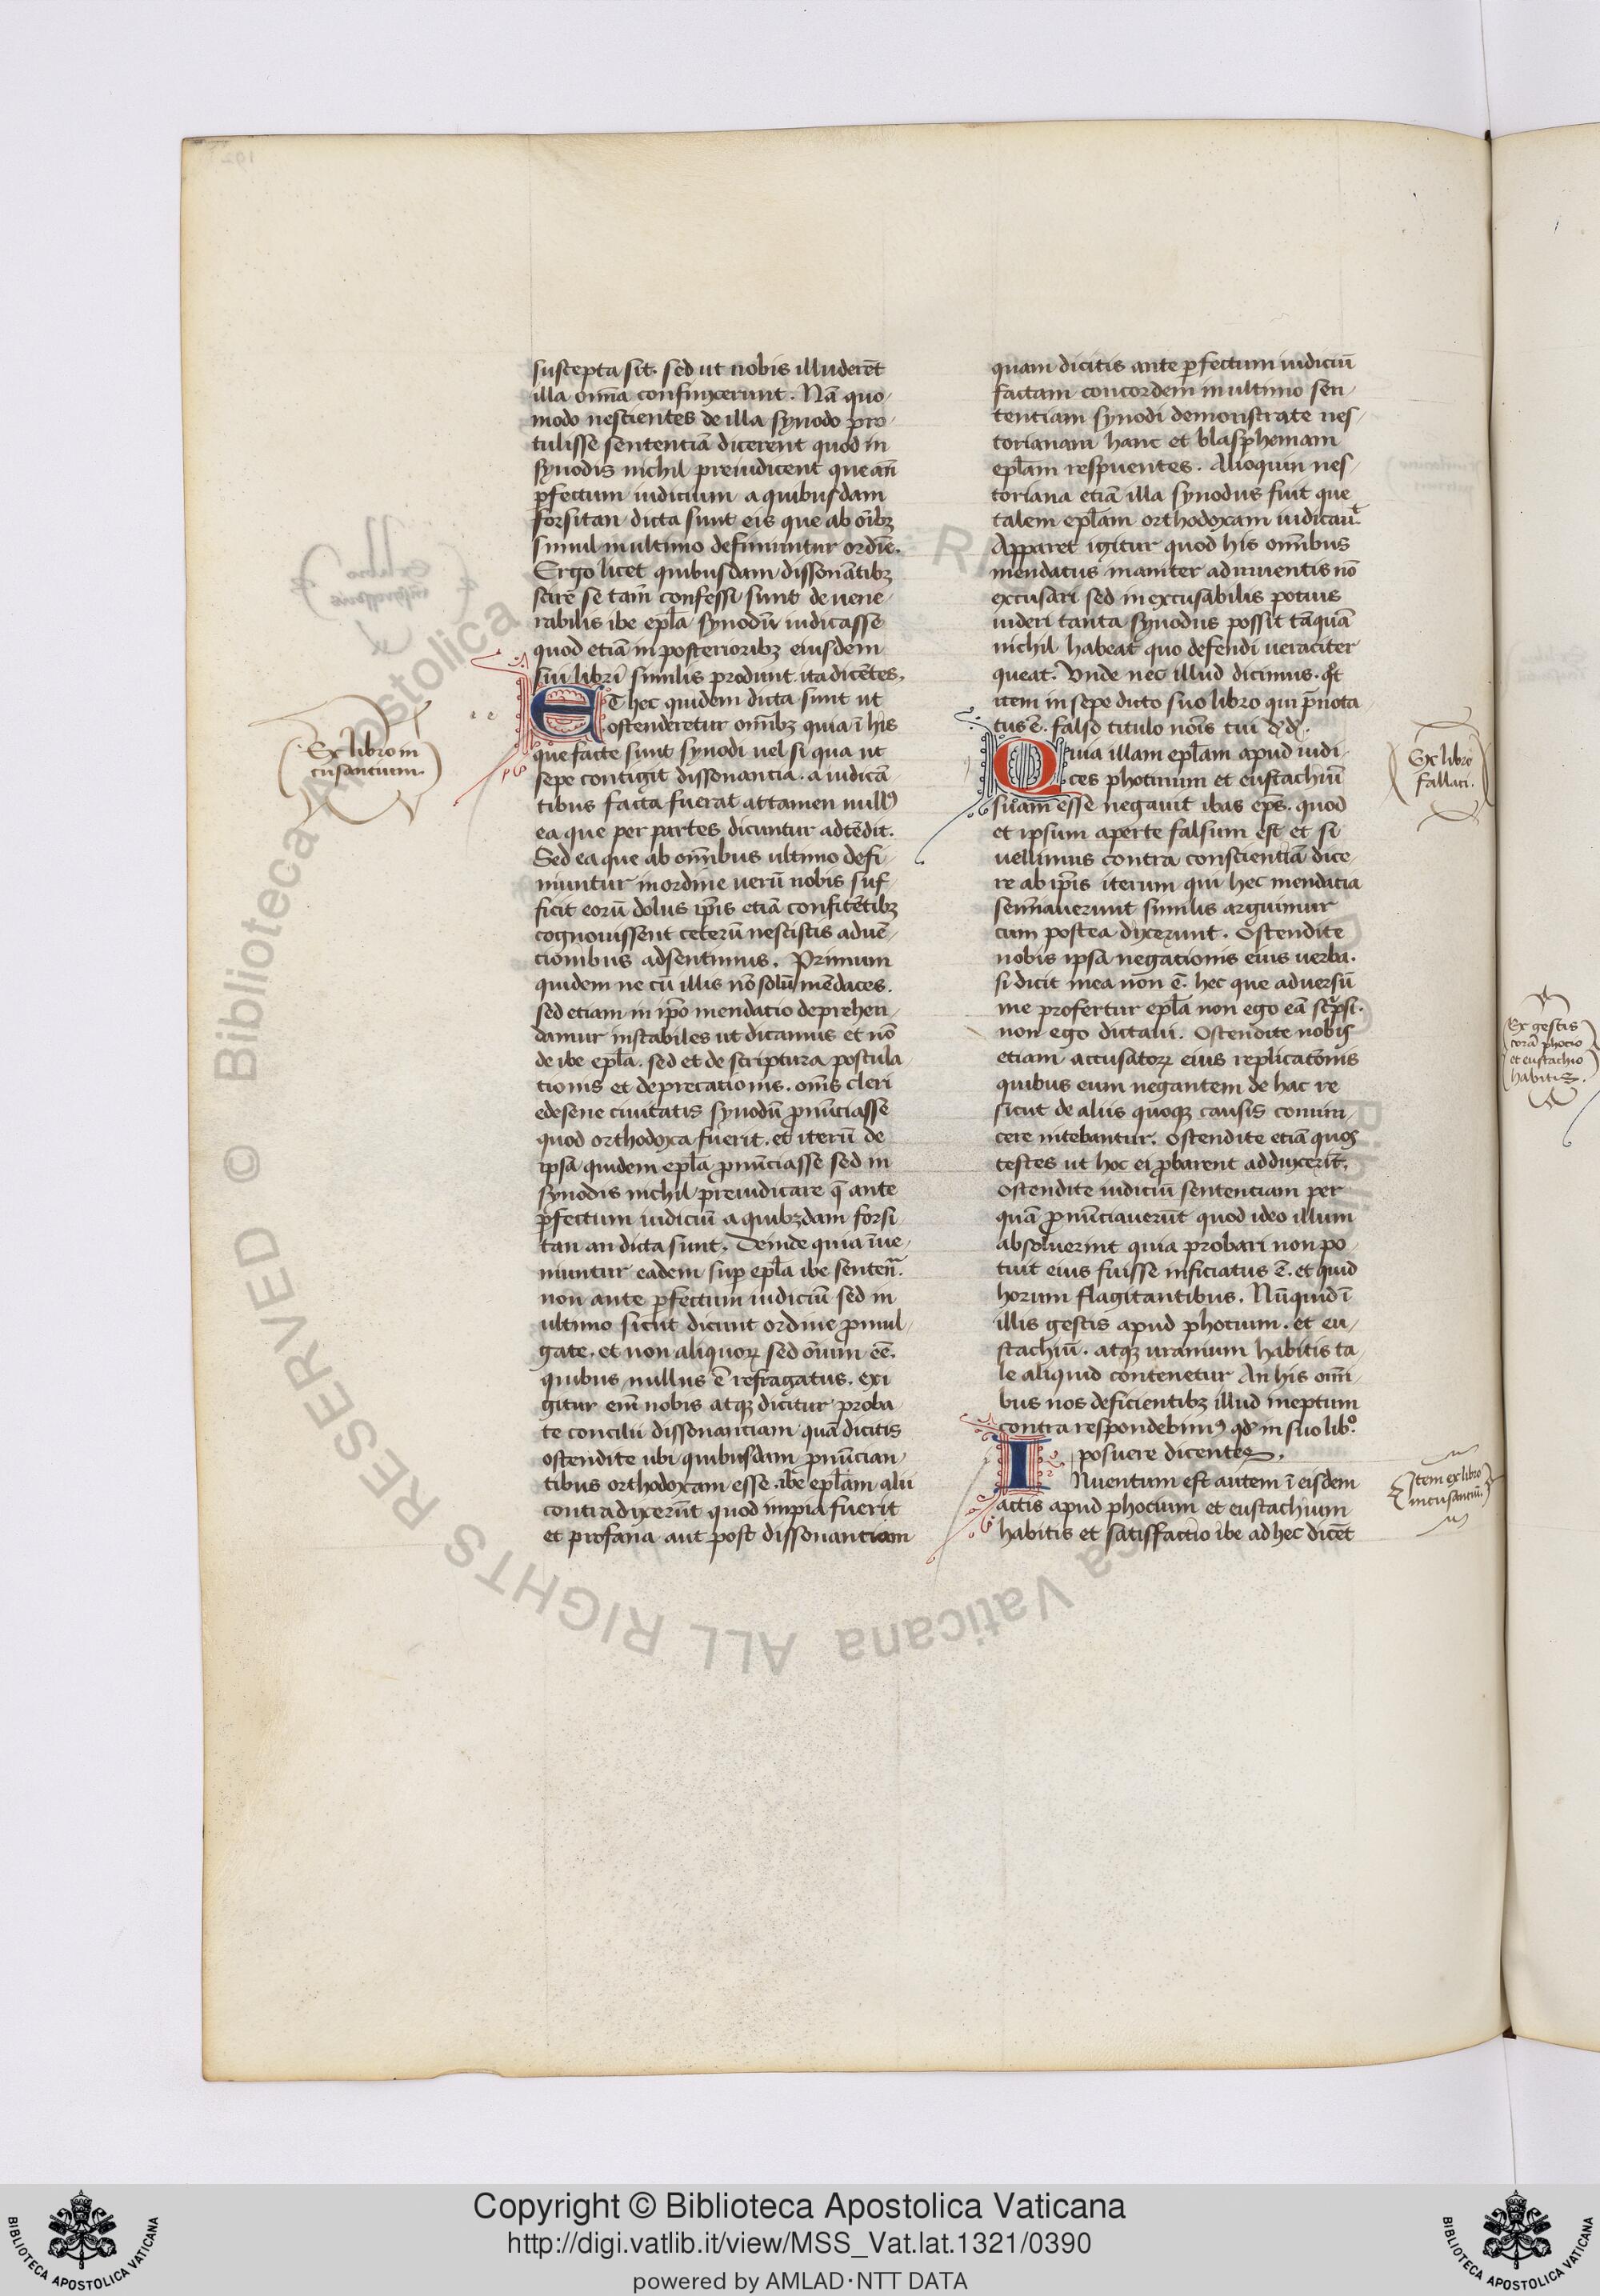 suscepta sit. sed ut nobis illuderēt
illa om̄ia confinxerunt. Nā quo-
modo nescientes de illa synodo pro-
tulisse sententiā dicerent quod in
synodis nichil preiudicent que an̄
ꝑfectum iudicium a quibusdam
forsitan dicta sunt eis que ab oībꝫ
simul in ultimo definiuntur ordīe.
Ergo licet quibusdam dissonātibꝫ
scire se tam̄ confessi sunt de uene-
rabilis ibe epl̄a synodū iudicasse
quod etiā in posterioribꝫ eiusdem
sui libri similis produnt ita dicētes.
ET hec quidem dicta sunt ut
ostenderetur om̄ibꝫ quia ī his
que facte sunt synodi uel si qua ut
sepe contigit dissonancia. a iudicā-
tibus facta fuerat attamen null᷒
ea que per partes dicuntur adtēdit.
Sed ea que ab om̄ibus ultimo defi-
niuntur in ordine uerū nobis suf-
ficit eorū dolus ip̄is etiā confitētibꝫ
cognouissent ceterū nescistis aduē-
cionibus adsentimus. Primum
quidem ne cū illis nō solū mēdaces.
sed etiam in ip̄o mendatio deprehen-
damur instabiles ut dicamus et nō
de ibe epl̄a. sed et de scriptura postula-
tionis et deprecationis. om̄s cleri
edesene ciuitatis synodū ꝓnūciasse
quod orthodoxa fuerit. et iterū de
ipsa quidem epl̄a ꝓnūciasse sed in
synodis nichil preiudicare q̄ ante
ꝑfectum iudiciū a quibꝫdam forsi-
tan an dicta sunt. Deinde quia īue-
niuntur eadem suꝑ epl̄a ibe senten̄.
non ante ꝑfectum iudiciū sed in
ultimo sicut dicunt ordine ꝓmul-
gate. et non aliquoꝝ sed oīum eē.
quibus nullus ē refragatus. exi
gitur em̄ nobis atqꝫ dicitur proba-
te concilii dissonanciam quā dicitis
ostendite ubi quibusdam ꝓnūcian-
tibus orthodoxam esse ibe epl̄am alii
contradixerūt quod impia fuerit
et profana aut post dissonanciam
Ex libro in
cusantium.
quam dicitis ante ꝑfectum iudiciū
factam concordem in ultimo sen-
tentiam synodi demonstrate nes-
torianam hanc et blasphemam
epl̄am respuentes. Alioquin nes-
toriana etiā illa synodus fuit que
talem epl̄am orthodoxam iudicau͛t
Apparet igitur quod his om̄ibus
mendatiis inaniter adinuentis nō
excusari sed in excusabilis potius
uideri tanta synodus possit tāquā
nichil habeat quo defendi ueraciter
queat. Vnde nec illud dicimus. qd̄
item in sepe dicto suo libro qui p̄nota-
tus ē. falso titulo nōis tui
Quia illam epl̄am apud iudi-
ces photinum et eustachiū
suam esse negauit ibas ep̄s. quod
et ipsum aperte falsum est et si
uellimus contra conscientiā dice-
re ab ip̄is iterum qui hec mendacia
semīauerunt similis arguimur
cum postea dixerunt. Ostendite
nobis ipsa negationis eius uerba.
si dicit mea non ē. hec que aduersū
me profertur epl̄a non ego eā scͥpsi.
non ego dictaui. Ostendite nobis
etiam accusatoꝝ eius replicatiōnis
quibus eum negantem de hac re
sicut de aliis quoqꝫ causis conuin-
cere nitebantur. Ostendite etiā quos
testes ut hoc ei ꝓbarent adduxerīt.
Ostendite iudiciū sentenciam per
quā ꝓnūciauerūt quod ideo illum
absoluerint quia probari non po-
tuit eius fuisse inficiatus ē. et quid
horum flagitantibus. Nūquid ī
illis gestis apud photium. et eu-
stachiū. atqꝫ uranium habitis ta-
le aliquid contenetur An his om̄i-
bus nos deficientibꝫ illud ineptum
contra respondebim᷒ qd̄ in suo libͦ.
posuere dicentes.
INuentum est autem ī eisdem
actis apud photium et eustachium
habitis et satisfactio ibe ad hec dicēt
Ex libro
fallaci.
Item ex libro
incusanciū.
Ex gestis
corā photio
et eustachio
habitis.
© Biblioteca Apostolica Vaticana ALL RIGHTS RESERVED
Copyright © Biblioteca Apostolica Vaticana
http://digi.vatlib.it/view/MSS_Vat.lat.1321/0390
powered by AMLAD·NTT DATA
BIBLIOTECA APOSTOLICA VATICANA
BIBLIOTECA APOSTOLICA VATICANA